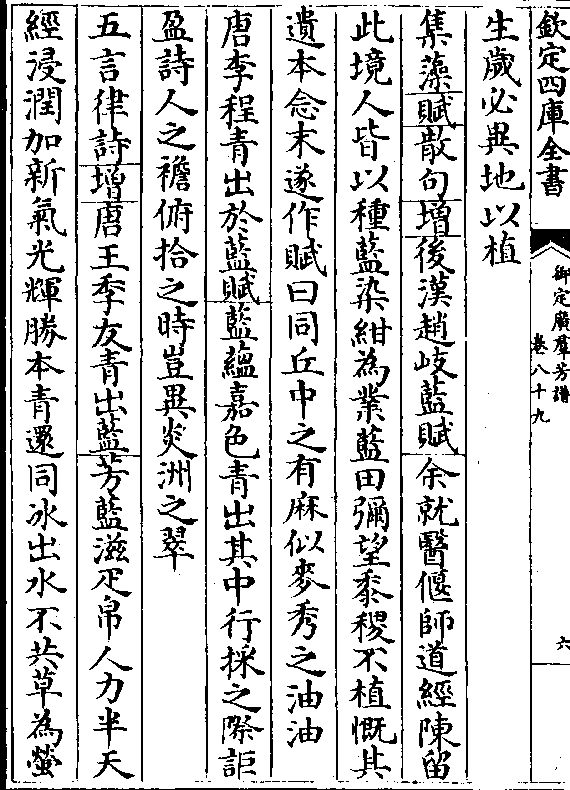 欽定四庫全書
御定廣羣芳譜
卷八十九
六
生歲必異地以植
集藻賦散句增後漢趙岐藍賦余就醫偃師道經陳留
此境人皆以種藍染紺為業藍田彌望黍稷不植慨其
遺本念末遂作賦曰同丘中之有麻似麥秀之油油
唐李程青出於藍賦藍蘊嘉色青出其中行採之際詎
盈詩人之襜俯拾之時豈異炎洲之翠
五言律詩增唐王季友青出藍芳藍滋疋帛人力半天
經浸潤加新氣光輝勝本青還同冰出水不共草為螢